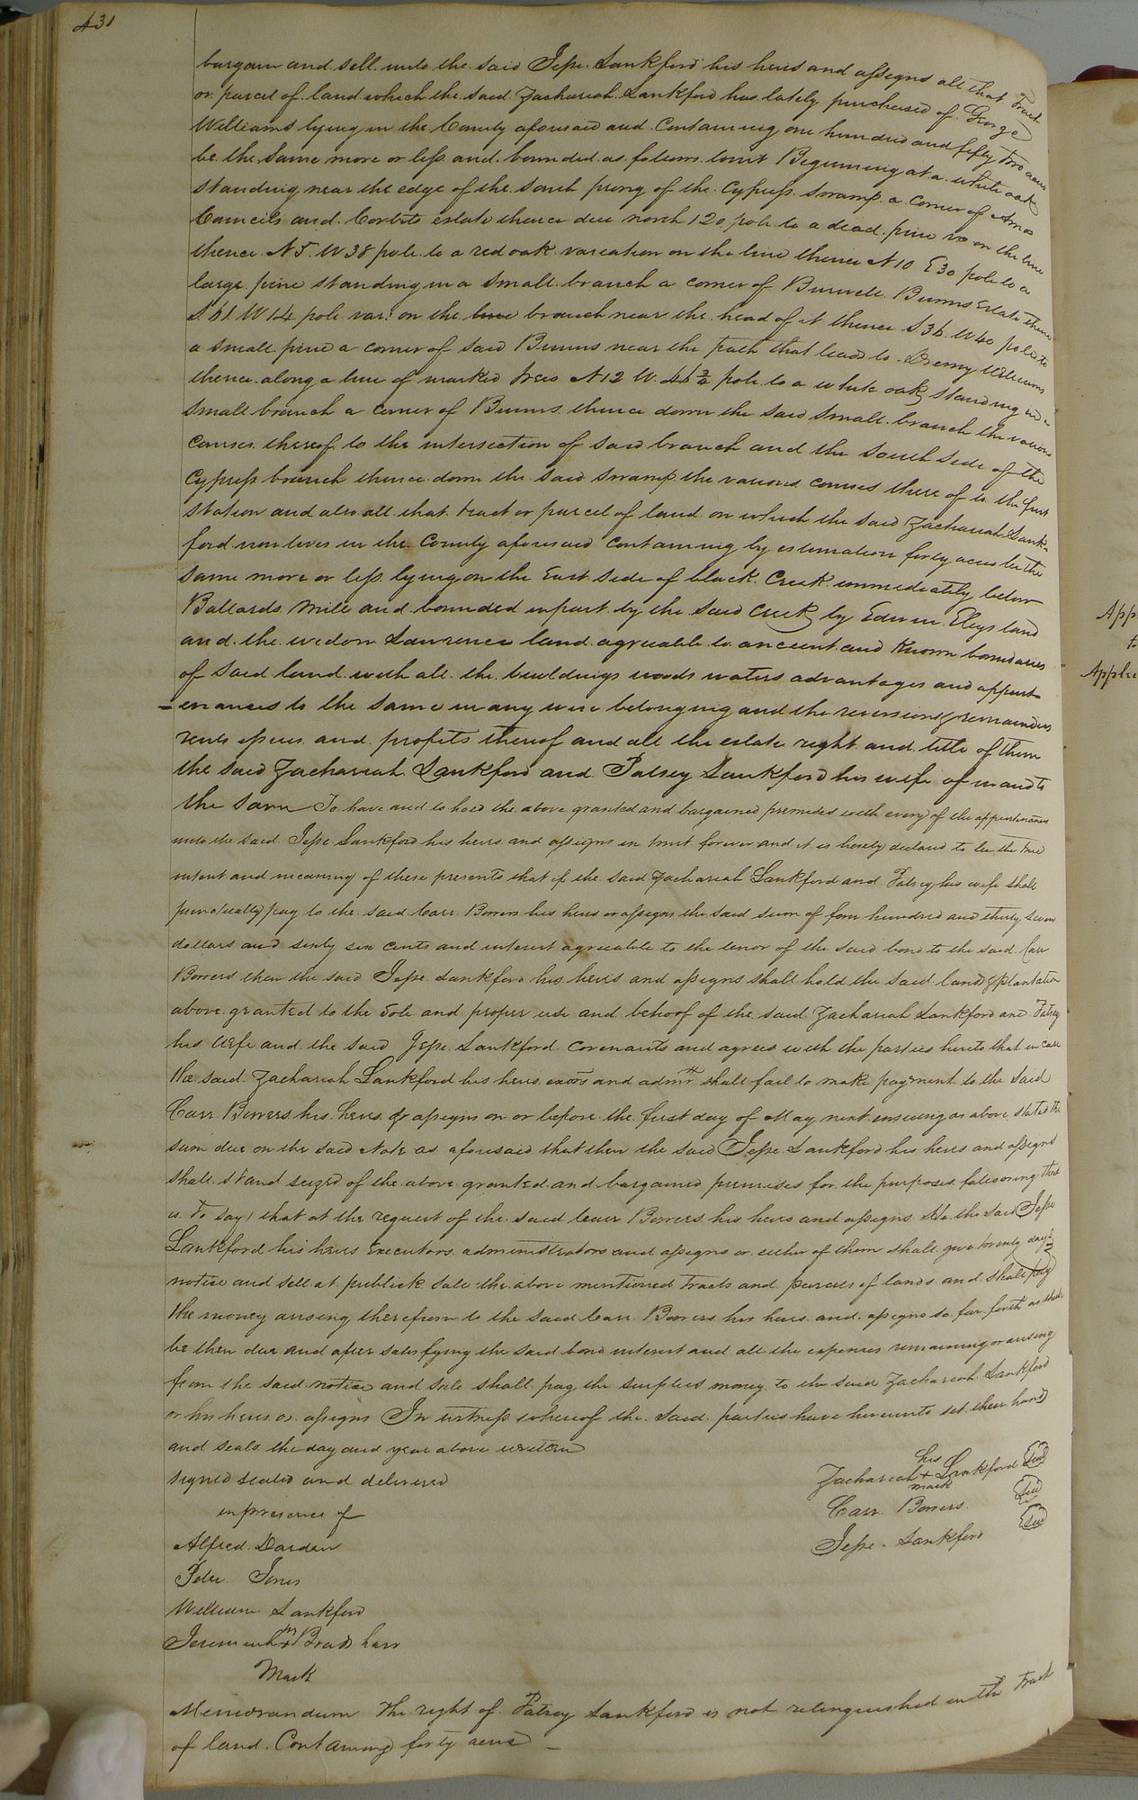 431
bargain and sell unto the said Jesse Lankford his heirs and assigns all that tract
or parcel of land which the said Zachariah Lankford has lately purchased of George
Williams lying in the County aforesaid and Containing one hundred and fifty two acres
be the same more or less and bounded as follows towit Beginning at a white oak
standing near the edge of the south prong of the Cypress swamp a corner of Amos
Councils and Corbits estate thence due north 120 pole to a dead pine vo on the line
thence N 5 W 38 pole to a red oak variation on the line thence N 10 E 30 pole to a
large pine standing in a small branch a corner of Burwell Bunns Estate thence
S 61 W 14 pole var. on the line branch near the head of it thence S 36 W 40 pole to
a small pine a corner of said Bunns near the path that leads to Drewry Williams
thence along a line of marked trees N 12 W 41 3/4 pole to a white oak standing in a
small branch a corner of Bunns thence down the said small branch the various
courses thereof to the intersection of said branch and the south side of the
Cypress branch thence down the said swamp the various courses there of to the first
station and also all that tract or parcel of land on which the said Zachariah Lank-
ford now lives in the County aforesaid containing by estimation forty acres be the
same more or less lying on the East side of black Creek immediately below
Ballards Mill and bounded in part by the said Creek by Edwin Eleys land
and the widow Lawrence land agreeable to ancient and Known boundaries
of said land with all the buildings woods waters advantages and appurt-
-enances to the same in any wise belonging and the reversions & remainders
rents issues and profits thereof and all the estate right and title of them
the said Zachariah Lankford and Patsey Lankford his wife of in and to
the same To have and to hold the above granted and bargained premises with every of the appurtenances
unto the said Jesse Lankford his heirs and assigns in trust forever and it is hereby declared to be the true
intent and meaning of these presents that if the said Zachariah Lankford and Patsey his wife shall
punctually pay to the said Carr Bowers his heirs or assigns the said sum of four hundred and thirty seven
dollars and sixty six cents and interest agreeable to the tenor of the said bond to the said Carr
Bowers then the said Jesse Lankford his heirs and assigns shall hold the said land & plantation
above granted to the sole and proper use and behoof of the said Zachariah Lankford and Patsey
his Wife and the said Jesse Lankford Covenants and agrees with the parties hereto that in case
the said Zachariah Lankford his heirs exors and admrs shall fail to make payment to the said
Carr Bowers his heirs & assigns on or before the first day of May next ensuing as above stated the
sum due on the said Note as aforesaid that then the said Jesse Lankford his heirs and assigns
shall stand seized of the above granted and bargained premises for the purposes following that
is to say, that at the request of the said Carr Bowers his heirs and assigns the said Jesse
Lankford his heirs Executors administrators and assigns or either of them shall give twenty days
notice and sell at publick sale the above mentioned tracts and parcels of lands and shall pay
the money arising therefrom to the said Carr Bowers his heirs and assigns so far forth as shall
be then due and after satisfying the said bond interest and all the expenses remaining or arising
from the said notice and sale shall pay the surplus money to the said Zachariah Lankford
or his heirs or assigns In witness whereof the said parties have hereunto set their hands
and seals the day and year above written
signed sealed and delivered
in presence of
Alfred Darden
Peter Jones
William Lankford
Jeremiah + Bradshaw
Mark
his
Zachariah + Lankford Seal
mark
Carr Bowers Seal
Jesse Lankford Seal
Memorandum The right of Patsey Lankford is not relinquished in the tract
of land Containing forty acres
App
to
Applie